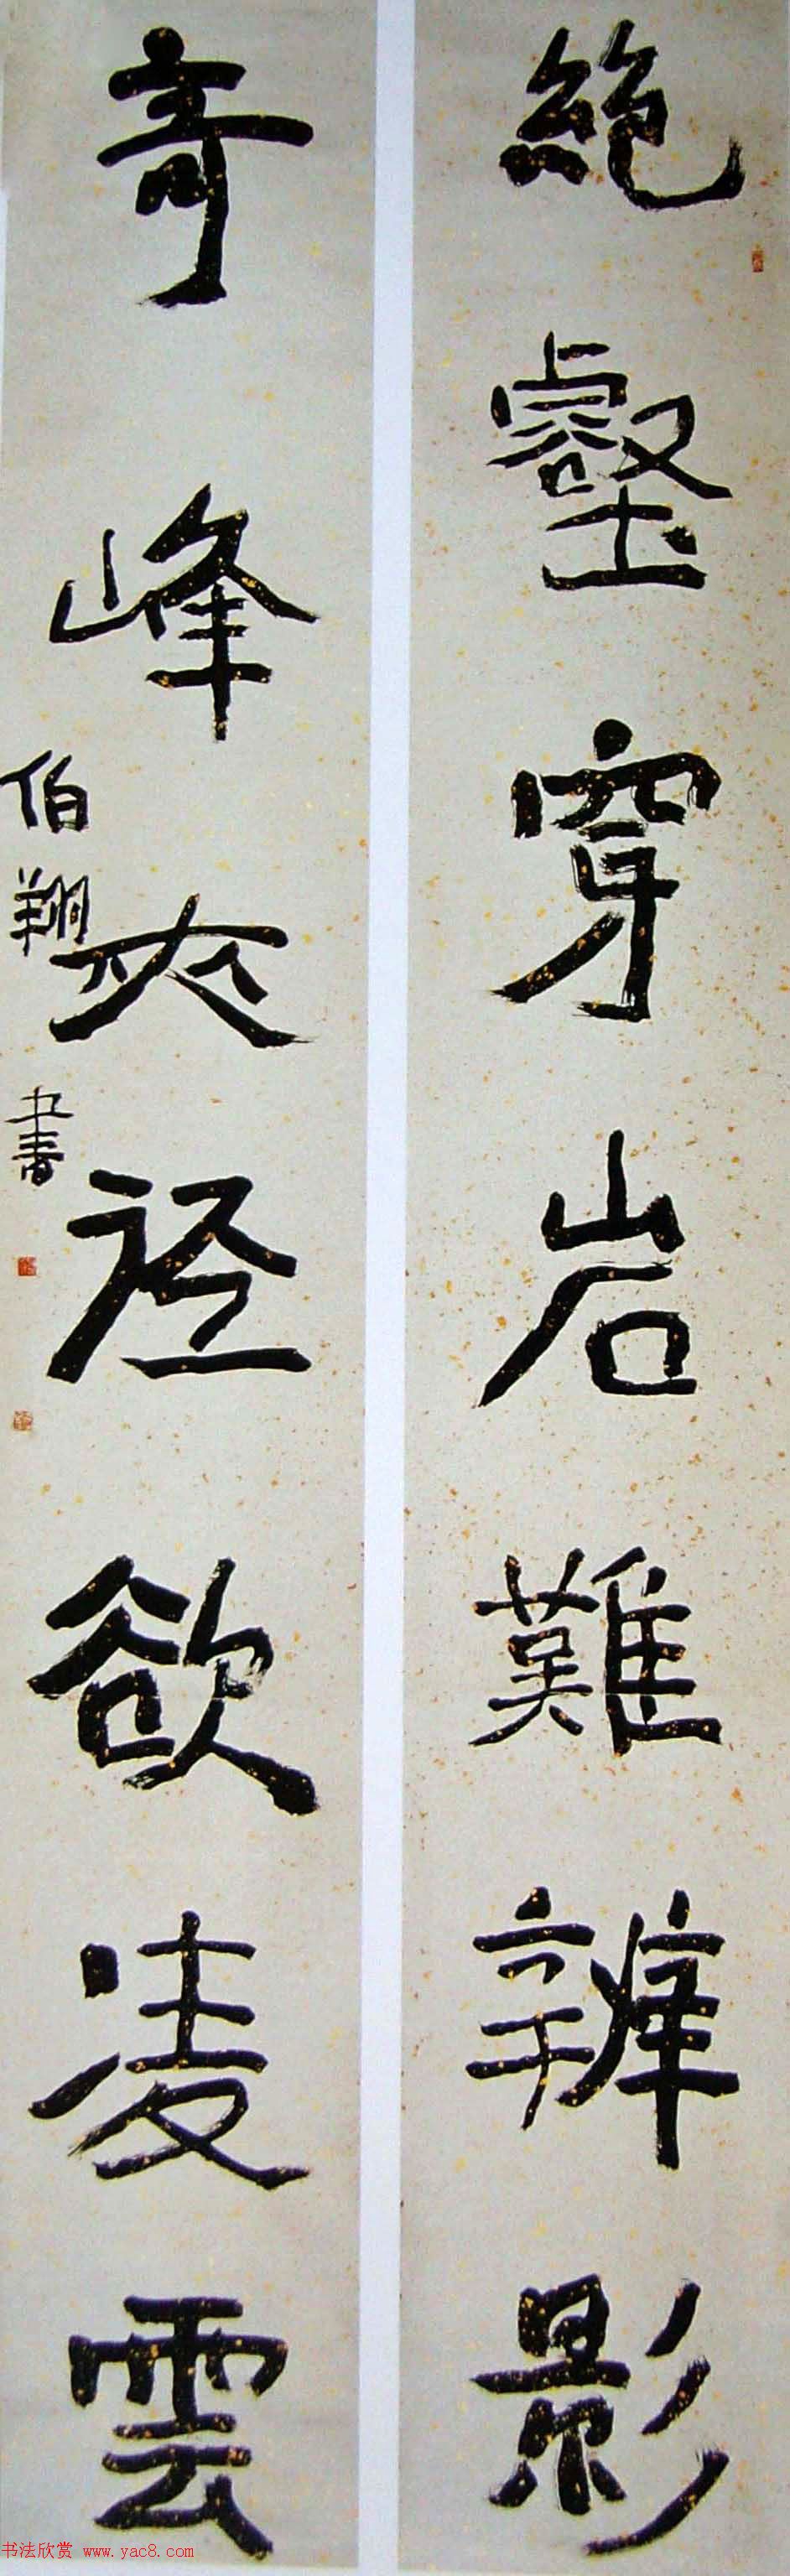 絶壑穿岩難辨影
奇峰夾徑欲凌雲
伯翔書
书法欣赏 www.yac8.com